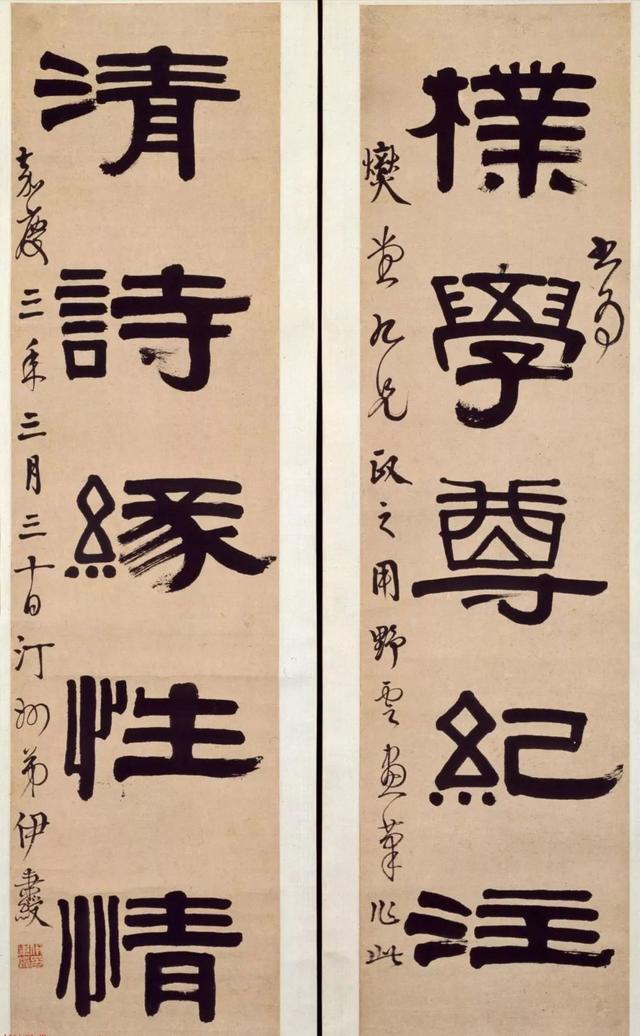 書為
樸學尊紀注
堂九兄政之用野雲畫筆作此
清詩緣性情
嘉慶三年三月三十日汀州弟伊秉綬